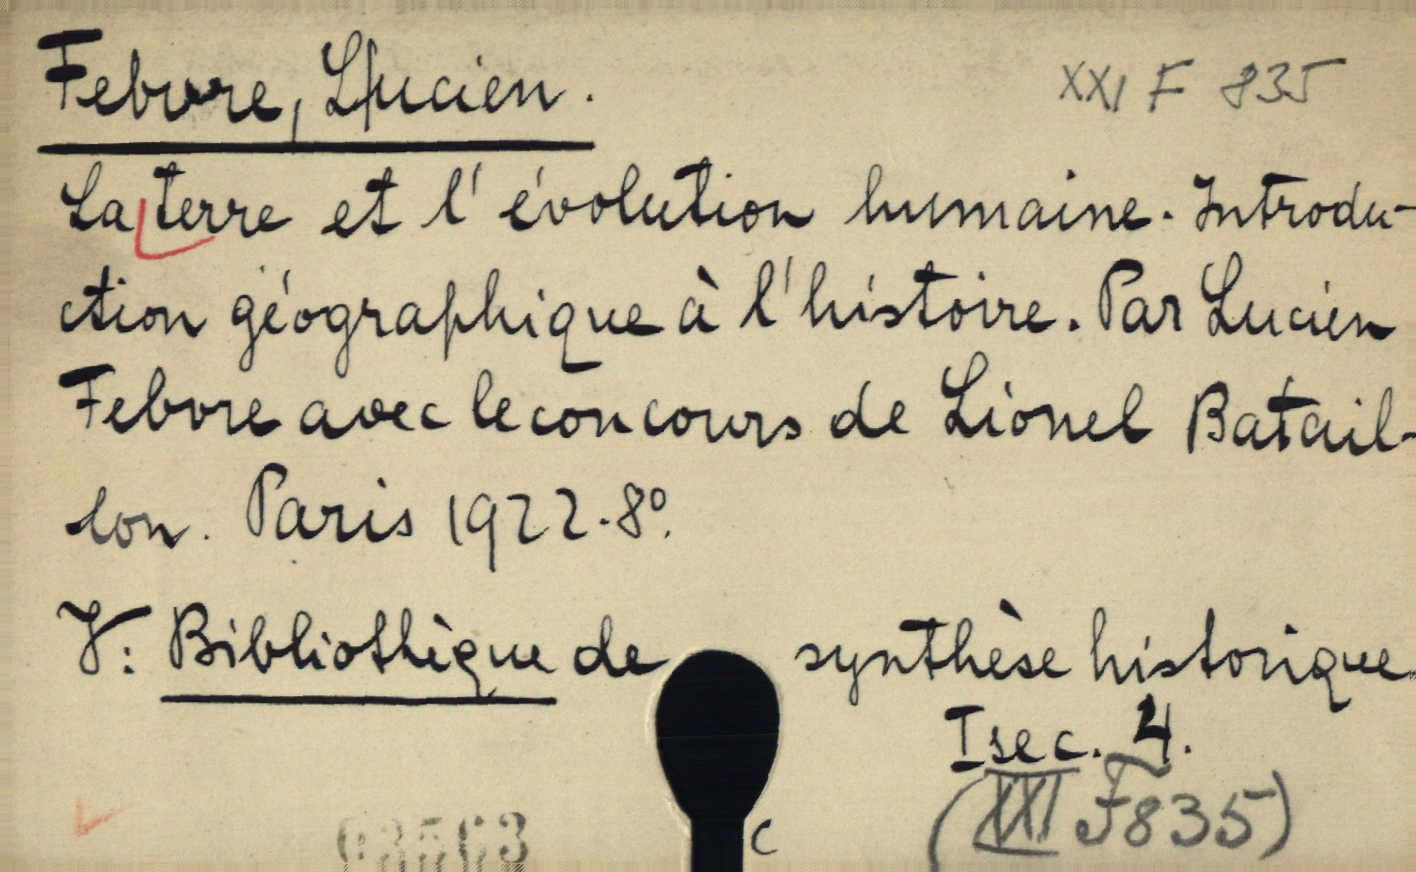 Febvre, Lucien. XXI F 835
La terre et l'évolution humaine. Introdu-
ction géographique à l'histoire. Par Lucien
Febvre avec le concours de Lionel Batail-
lon. Paris 1922. 8º.
V: Bibliothèque de synthèse historique
I sec. 4.
(XXI F 835)
C